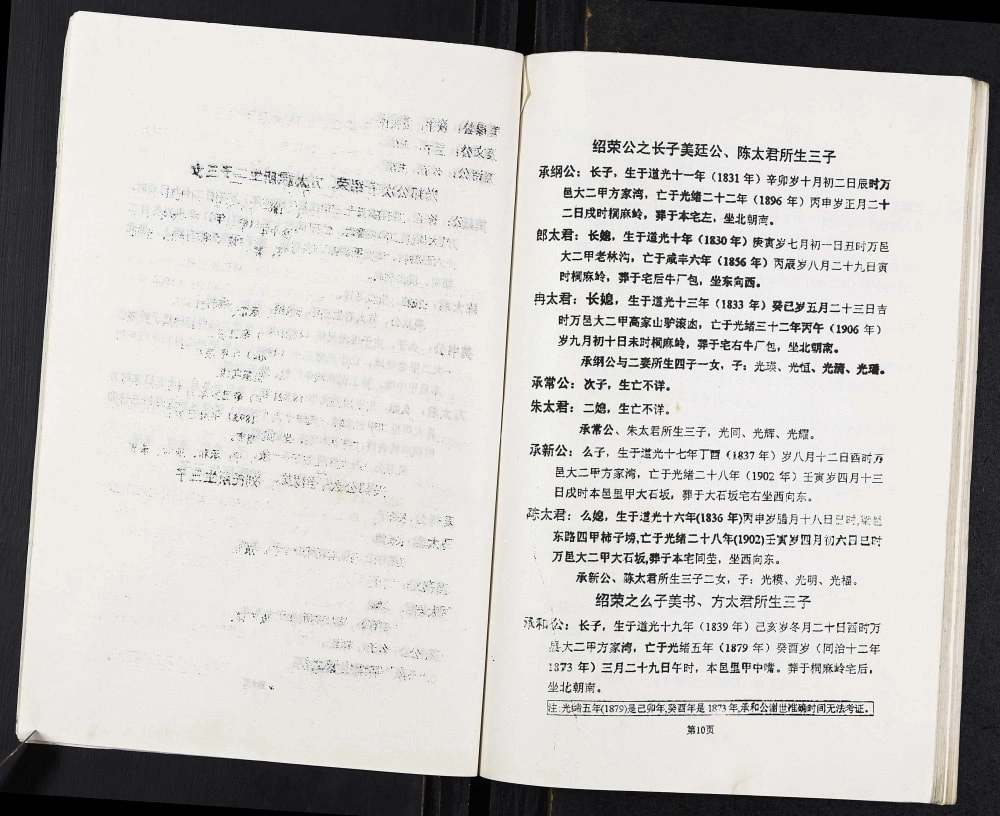 绍荣公之长子美廷公、陈太君所生三子
承纲公：长子，生于道光十一年（1831 年）辛卯岁十月初二日辰时万
邑大二甲方家湾，亡于光绪二十二年（1896 年）丙申岁正月二十
二日戌时桐麻岭，葬于本宅左，坐北朝南。
郎太君：长媳，生于道光十年（1830 年）庚寅岁七月初一日丑时万邑
大二甲老林沟，亡于咸丰六年（1856 年）丙辰岁八月二十九日寅
时桐麻岭，葬于宅后牛厂包，坐东向西。
冉太君：长媳，生于道光十三年（1833 年）癸巳岁五月二十三日吉
时万邑大二甲高家山驴滚凼，亡于光绪三十二年丙午（1906 年）
岁九月初十日未时桐麻岭，葬于宅右牛厂包，坐北朝南。
承纲公与二妻所生四子一女，子：光瑛、光恒、光清、光璠。
承常公：次子，生亡不详。
朱太君：二媳，生亡不详。
承常公、朱太君所生三子，光同、光辉、光耀。
承新公：么子，生于道光十七年丁酉（1837 年）岁八月十二日酉时万
邑大二甲方家湾，亡于光绪二十八年（1902 年）壬寅岁四月十三
日戌时本邑里甲大石坂，葬于大石坂宅右坐西向东。
陈太君：么媳，生于道光十六年(1836 年)丙申岁腊月十八日巳时,梁邑
东路四甲柿子塝,亡于光绪二十八年(1902)壬寅岁四月初六日巳时
万邑大二甲大石坂,葬于本宅同茔，坐西向东。
承新公、陈太君所生三子二女，子：光模、光明、光福。
绍荣之么子美书、方太君所生三子
承和公：长子，生于道光十九年（1839 年）己亥岁冬月二十日酉时万
邑大二甲方家湾，亡于光绪五年（1879 年）癸酉岁（同治十二年
1873 年）三月二十九日午时，本邑里甲中嘴。葬于桐麻岭宅后，
坐北朝南。
注:光绪五年(1879)是己卯年,癸酉年是 1873 年,承和公谢世准确时间无法考证。
第10页